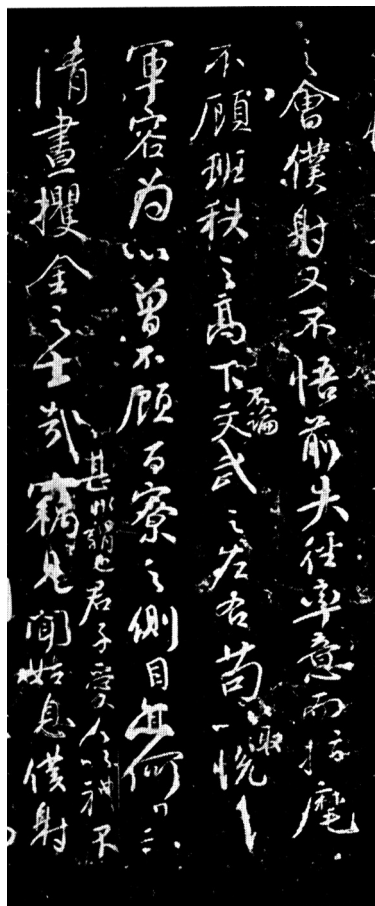 之會僕射又不悟前失徑率意而指麾
不顧班秩之高下不論文武之左右苟以取悅
軍容為心曾不顧百寮之側目亦何異
甚非謂也君子愛人以禮不
清晝攫金之士哉竊見聞姑息僕射